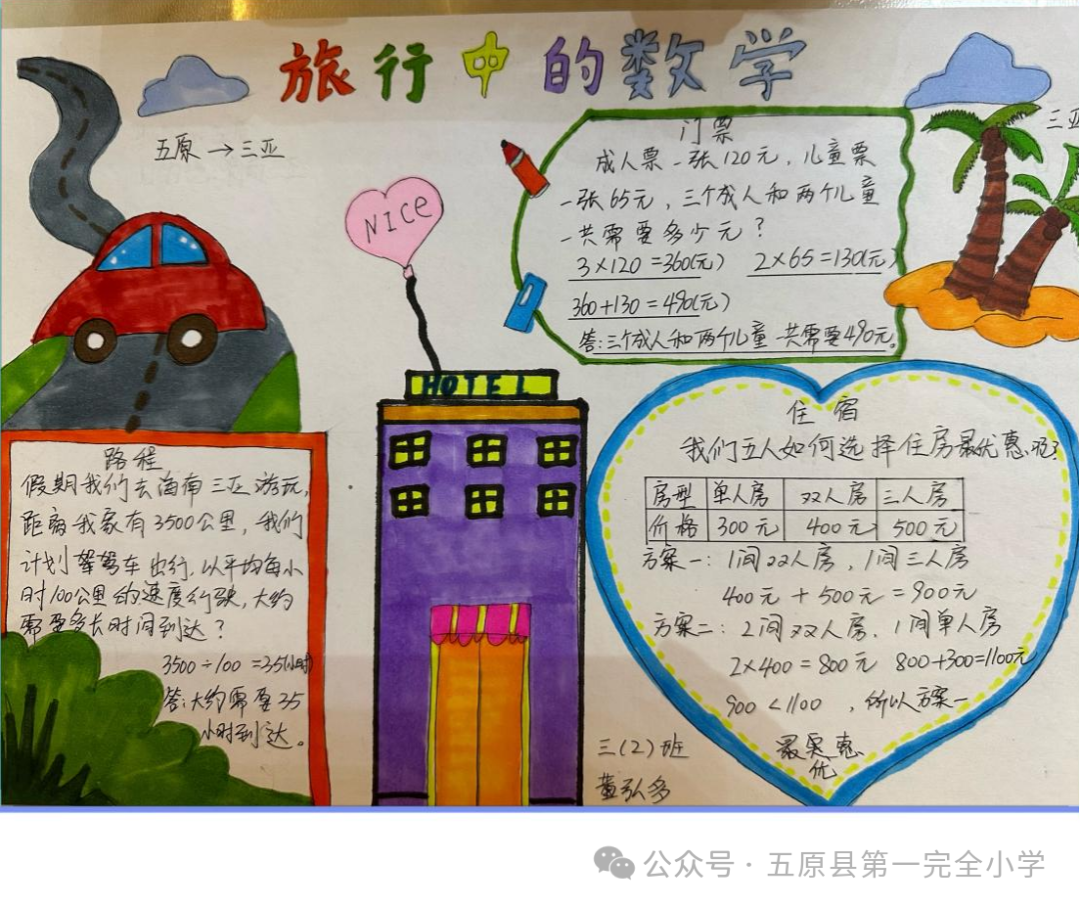 旅行中的数学
五原→三亚
三亚
NICE
门票
成人票一张120元,儿童票
一张65元,三个成人和两个儿童
一共需要多少元?
3×120=360(元) 2×65=130(元)
360+130=490(元)
答:三个成人和两个儿童一共需要490元。
HOTEL
路程
假期我们去海南三亚游玩,
距离我家有3500公里,我们
计划驾驾车出行,以平均每小
时100公里的速度行驶,大约
需要多长时间到达?
3500÷100=35(小时)
答:大约需要35
小时到达。
住宿
我们五人如何选择住房最优惠呢?
房型 单人房 双人房 三人房
价格 300元 400元 500元
方案一:1间双人房,1间三人房
400元+500元=900元
方案二:2间双人房,1间单人房
2×400=800元 800+300=1100元
900<1100,所以方案一
最实惠
优
三(2)班
黄弘多
公众号·五原县第一完全小学